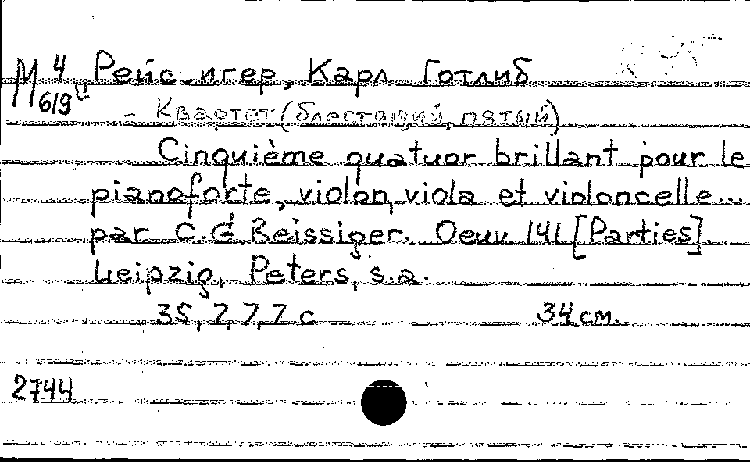 М 4 Рейс игер, Карл Готлиб
619
- Квартет (блестащий, пятый)
Cinquième quatuor brillant pour le
pianoforte, violon, viola et violoncelle...
par C. G. Reissiger. Oeuv 141 [Parties].
Leipzig, Peters, s.a.
35, 7, 7, 7 с 34 см.
2744